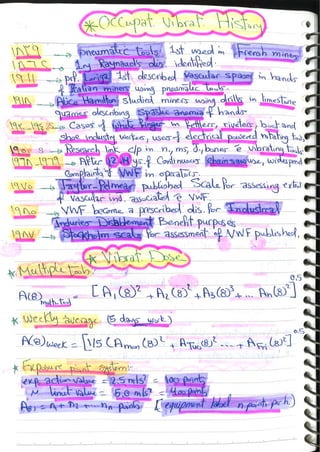 * Occupat. Vibrat. History
1839 → Pneumatic tools 1st used in French mines
→ Raynaud's dis. identified.
1911 → prf. Loriga 1st described Vascular spasm in hands
of Italian miners using pneumatic tools.
1918 → Alice Hamilton studied miners using drills in limestone
quarries describing Spastic anemia of hands.
→ Cases of White finger in Fettlers, riveters, boot and
shoe industry workers, users of electrical powered rotating tools
→ Research link c/p in n, ms, dis, bones & vibrating tools
→ After yrs of Continuous chain saw use, widespread
Complaints of VWF in operators.
1975 → Taylor-Pelmear published Scale for assessing extent
of Vascular ind. associated & VWF.
1985 → VWF become a prescribed dis. for Industrial
Injuries Disablement Benefit purposes
→ Stockholm scale for assessment of VWF published.
* Vibrat. Dose
* Multiple tools
A(8)multi.tool = [A₁(8)² + A₂(8)² + A₃(8)² + ... An(8)²]^0.5
* Weekly average (5 days work)
A(8)week = [1/5 (Amon(8)² + ATus(8)² .... + AFri(8)²]^0.5
* Exposure point system:-
exp action value = 2.5 m/s² = 100 points
~ limit value = 5.0 m/s² = 400 points
= n₁ + n₂ + ... nn points [equipment label n. points p. h.]